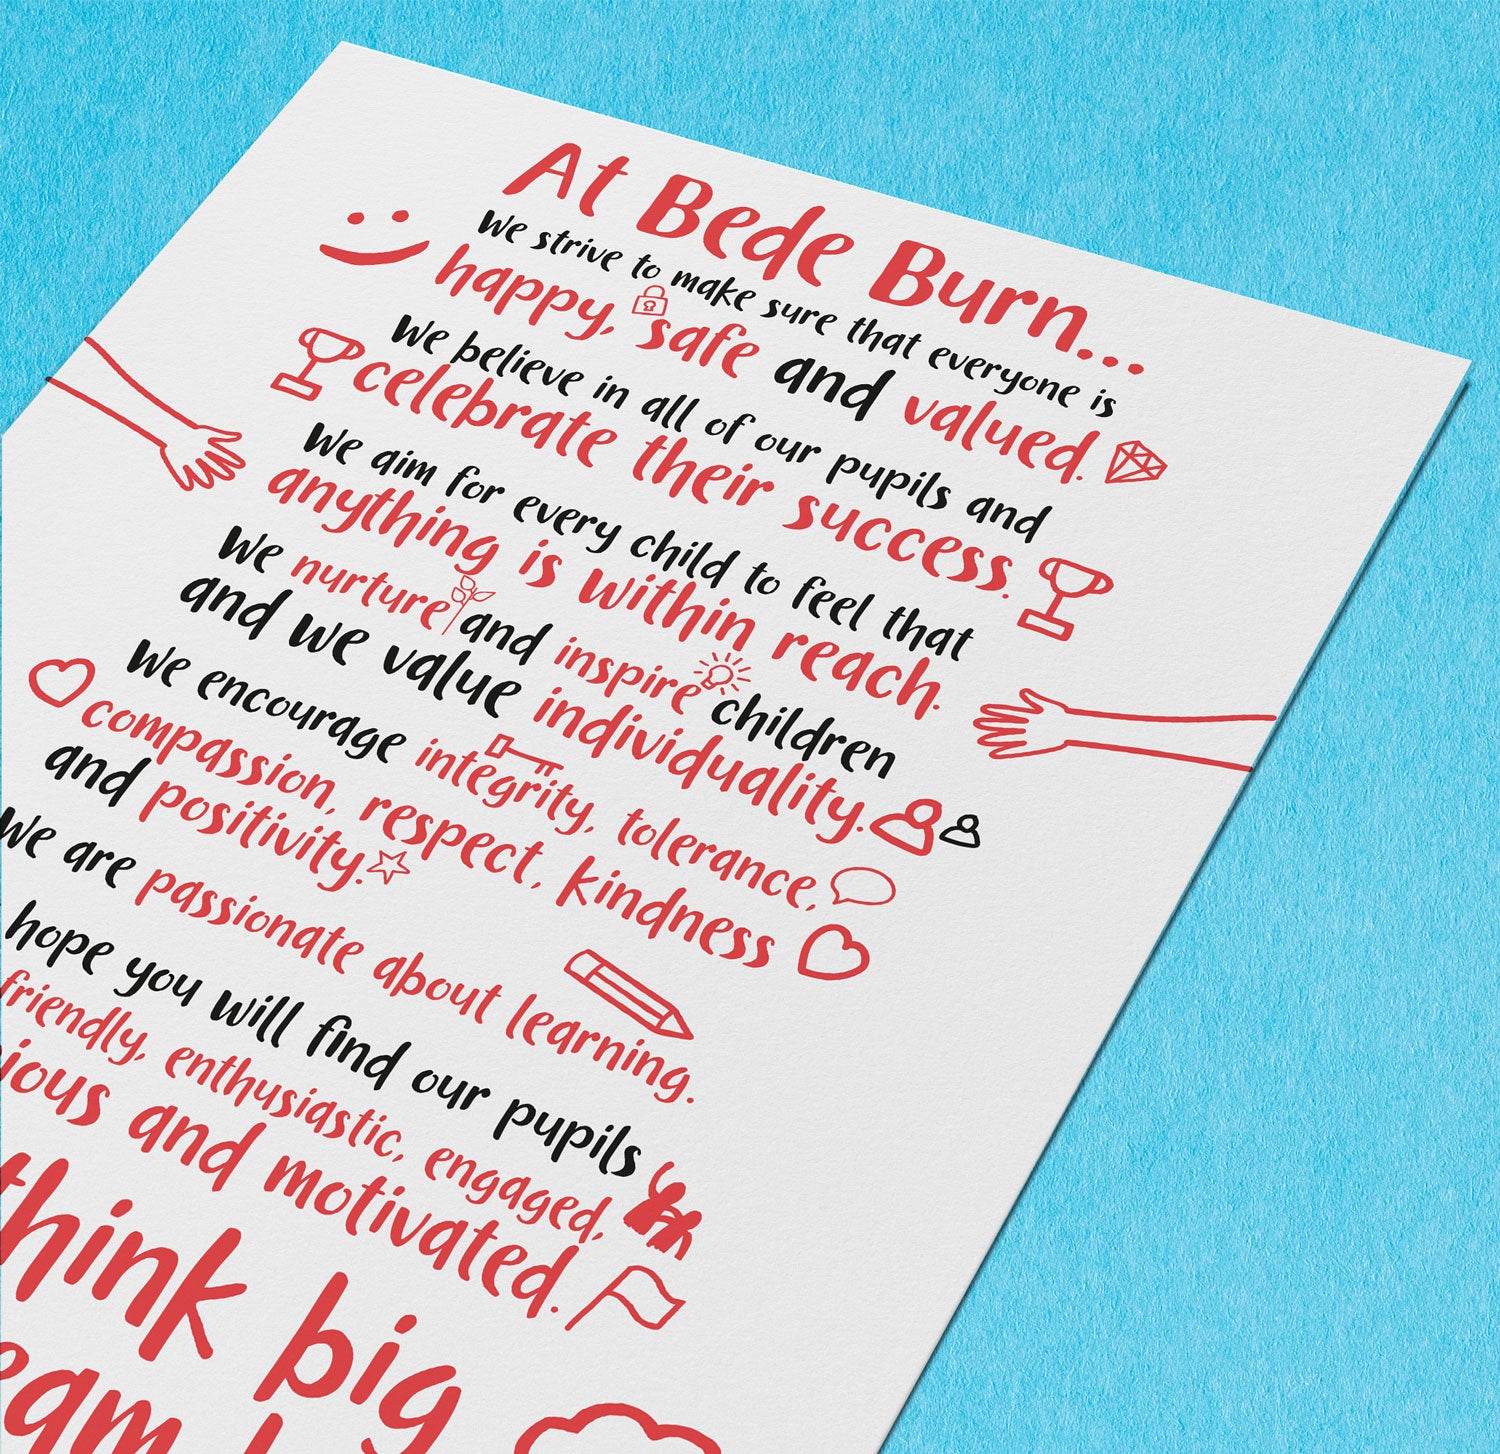 At Bede Burn...
We strive to make sure that everyone is
happy, safe and valued.
We believe in all of our pupils and
celebrate their success.
We aim for every child to feel that
anything is within reach.
We nurture and inspire children
and we value individuality.
We encourage integrity, tolerance,
compassion, respect, kindness
and positivity.
We are passionate about learning.
hope you will find our pupils
friendly, enthusiastic, engaged,
ious and motivated.
think big
eam